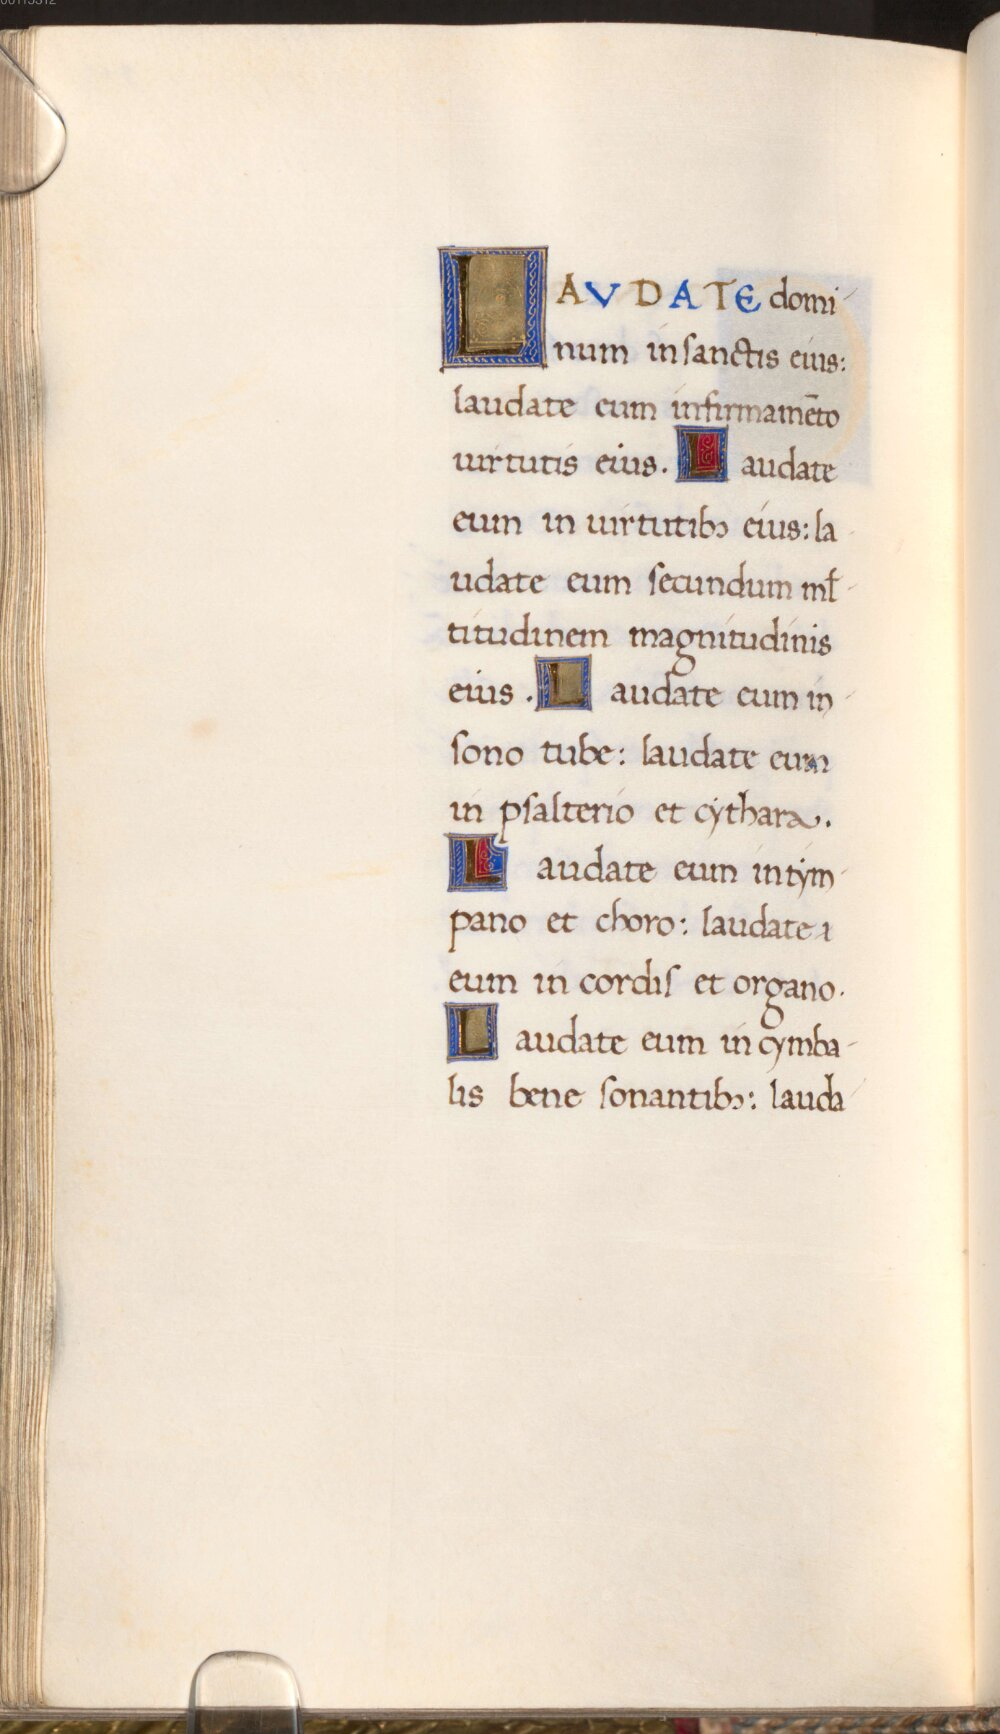 LAVDATE domi
num in sanctis eius:
laudate eum infirmamēto
uirtutis eius. Laudate
eum in uirtutibꝰ eius: la
udate eum secundum ml̄
titudinem magnitudinis
eius. Laudate eum in
sono tube: laudate eum
in psalterio et cythara.
Laudate eum in tým
pano et choro: laudate ı
eum in cordis et organo.
Laudate eum in cymba
lis bene sonantibꝰ: lauda